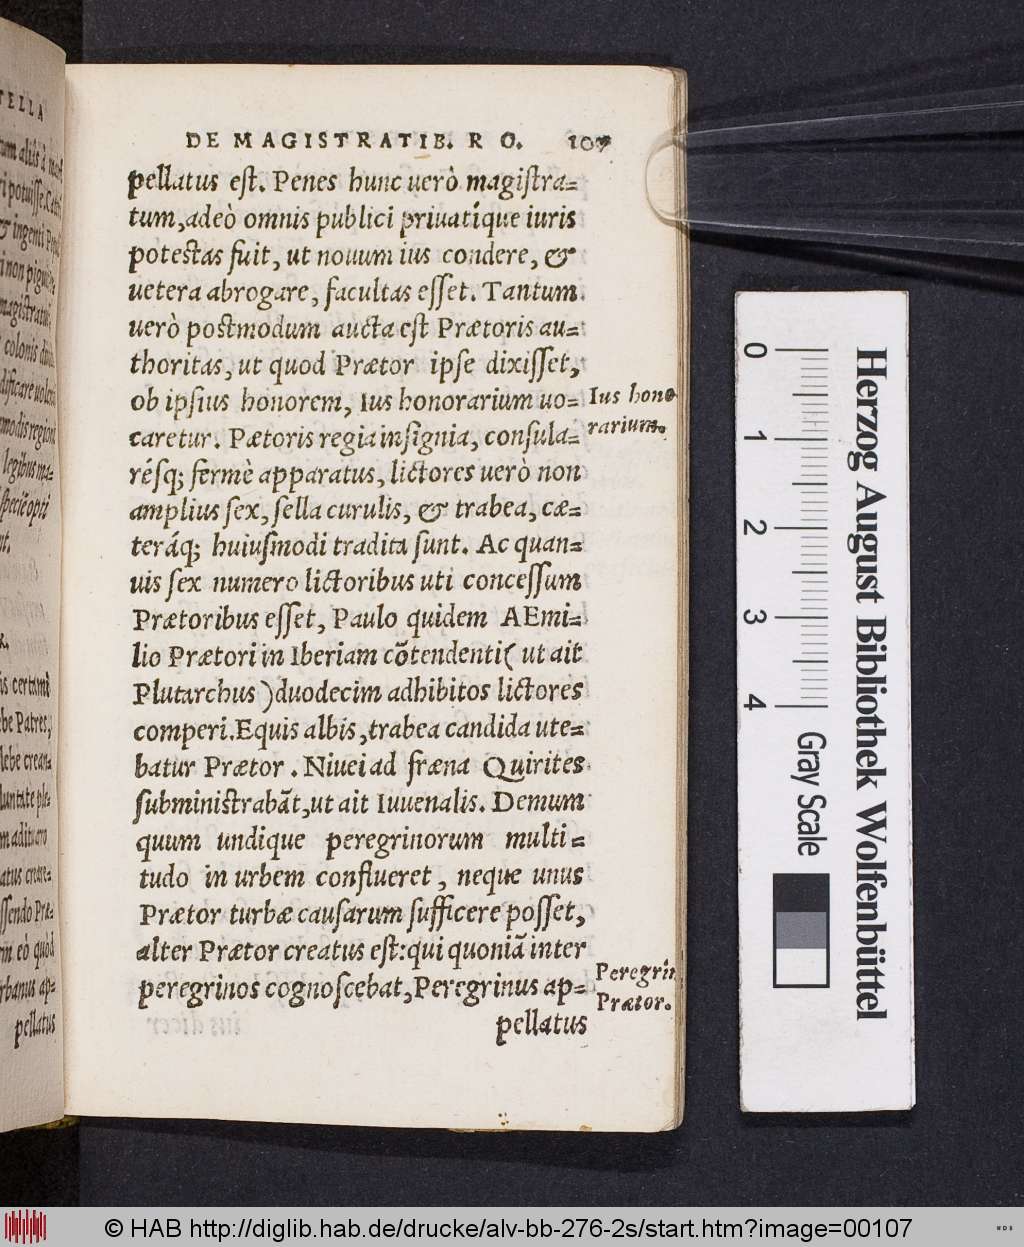 TELLA
pellatus
DE MAGISTRATIB. R O. 107
pellatus est. Penes hunc uerò magistra=
tum, adeò omnis publici priuatíque iuris
potestas fuit, ut nouum ius condere, &
uetera abrogare, facultas esset. Tantum
uerò postmodum aucta est Prætoris au=
thoritas, ut quod Prætor ipse dixisset,
ob ipsius honorem, Ius honorarium uo=
caretur. Pætoris regia insignia, consula=
résq; fermè apparatus, lictores uerò non
amplius sex, sella curulis, & trabea, cæ=
teráq; huiusmodi tradita sunt. Ac quan=
uis sex numero lictoribus uti concessum
Prætoribus esset, Paulo quidem AEmi=
lio Prætori in Iberiam cõtendenti( ut ait
Plutarchus )duodecim adhibitos lictores
comperi. Equis albis, trabea candida ute=
batur Prætor. Niuei ad fræna Quirites
subministrabãt, ut ait Iuuenalis. Demum
quum undique peregrinorum multi=
tudo in urbem conflueret, neque unus
Prætor turbæ causarum sufficere posset,
alter Prætor creatus est: qui quoniã inter
peregrinos cognoscebat, Peregrinus ap=
pellatus
Ius hono
rarium.
Peregrin
Prætor.
0
1
2
3
4
Gray Scale
Herzog August Bibliothek Wolfenbüttel
© HAB http://diglib.hab.de/drucke/alv-bb-276-2s/start.htm?image=00107
WDB